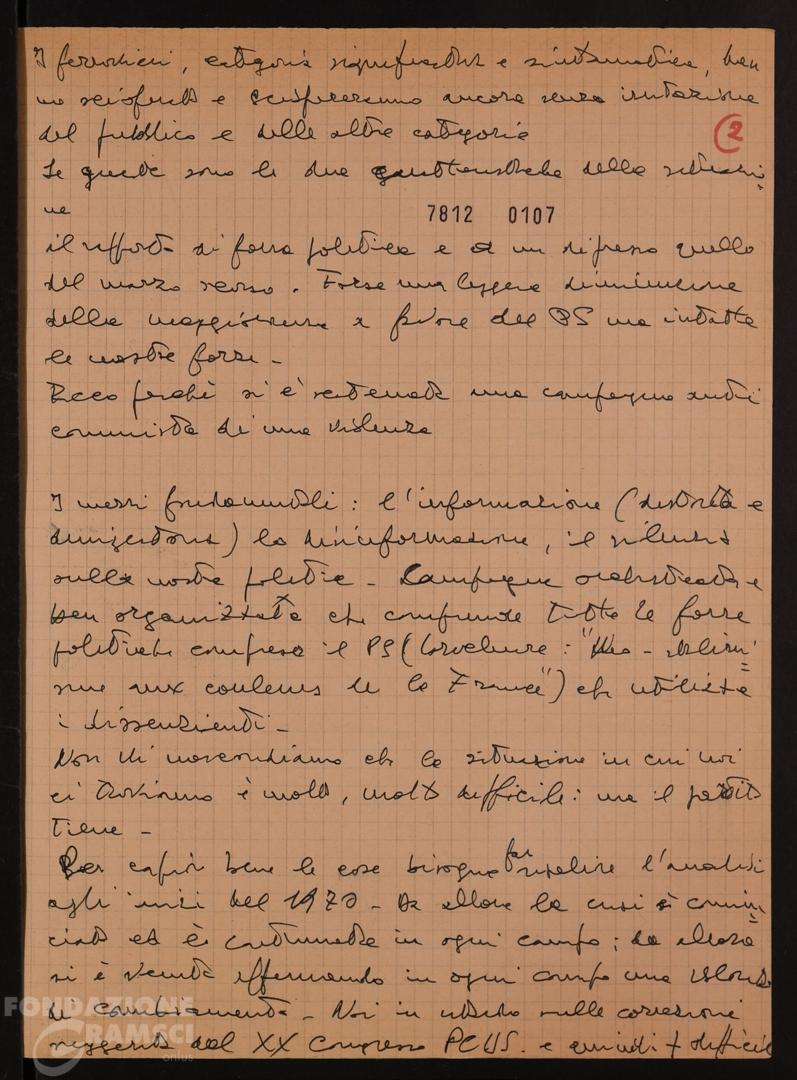 I ferrovieri, categoria significativa e sintomatica, han
no scioperato e sciopereranno ancora senza irritazione
del pubblico e delle altre categorie
2
Se queste sono le due caratteristiche della situazio=
ne
7812 0107
il rapporto di forza politica e a un dipresso quello
del marzo scorso. Forse una leggera diminuzione
della maggioranza a favore del PS ma intatte
le nostre forze -
Ecco perché si è scatenata una campagna anti
comunista di una violenza
I mezzi fondamentali: l'informazione (distorta e
) la disinformazione, il silenzio
sulla nostra politica - Campagna orchestrata e
ben organizzata che comprende tutte le forze
politiche compreso il PS ( : "
aux couleurs de la France") che utilizza
i dissenzienti -
Non vi nascondiamo che la situazione in cui noi
ci troviamo è molto, molto difficile: ma il partito
tiene -
Per capir bene le cose bisogna far risalire l'analisi
agli inizi del 1970 - Da allora la crisi è comin=
ciata ed è continuata in ogni campo; da allora
si è venuta affermando in ogni campo una volontà
di cambiamento - Noi in ritardo sulle correzioni
suggerite dal XX Congresso PCUS. e quindi + difficil
FONDAZIONE
GRAMSCI
onlus